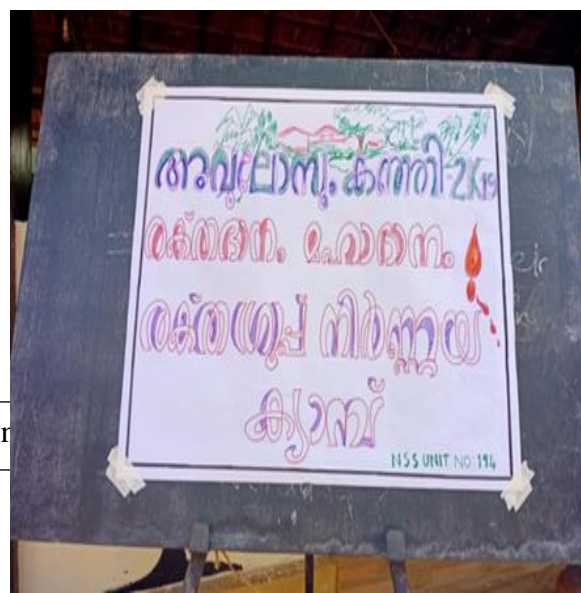 അവലോസും കഞ്ഞി-2K19
രക്തദാനം മഹാദാനം
രക്തഗ്രൂപ്പ് നിർണ്ണയ
ക്യാമ്പ്
NSS UNIT NO: 194